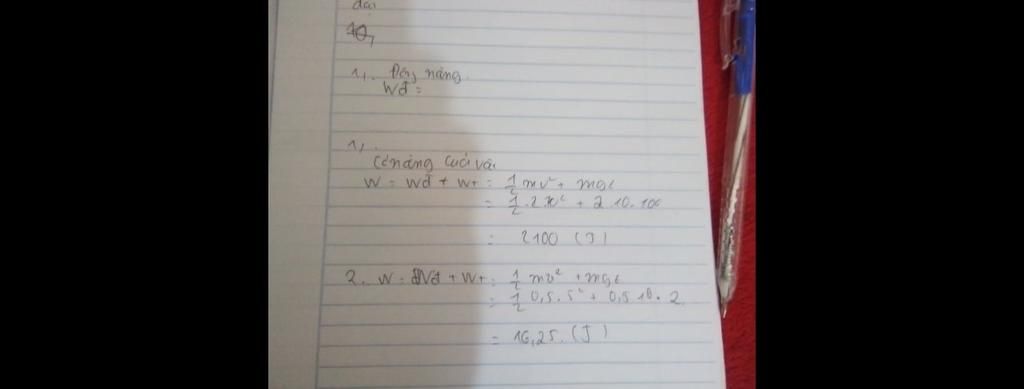 đại
1, Động năng.
Wđ =
1,
Cơ năng của vật
W = Wđ + Wt = 1/2 mv² + mgz
= 1/2 . 2 . 10² + 2 . 10 . 100
= 2100 (J)
2. W = Wđ + Wt = 1/2 mv² + mgz
= 1/2 0,5 . 5² + 0,5 10 . 2
= 16,25 . (J)